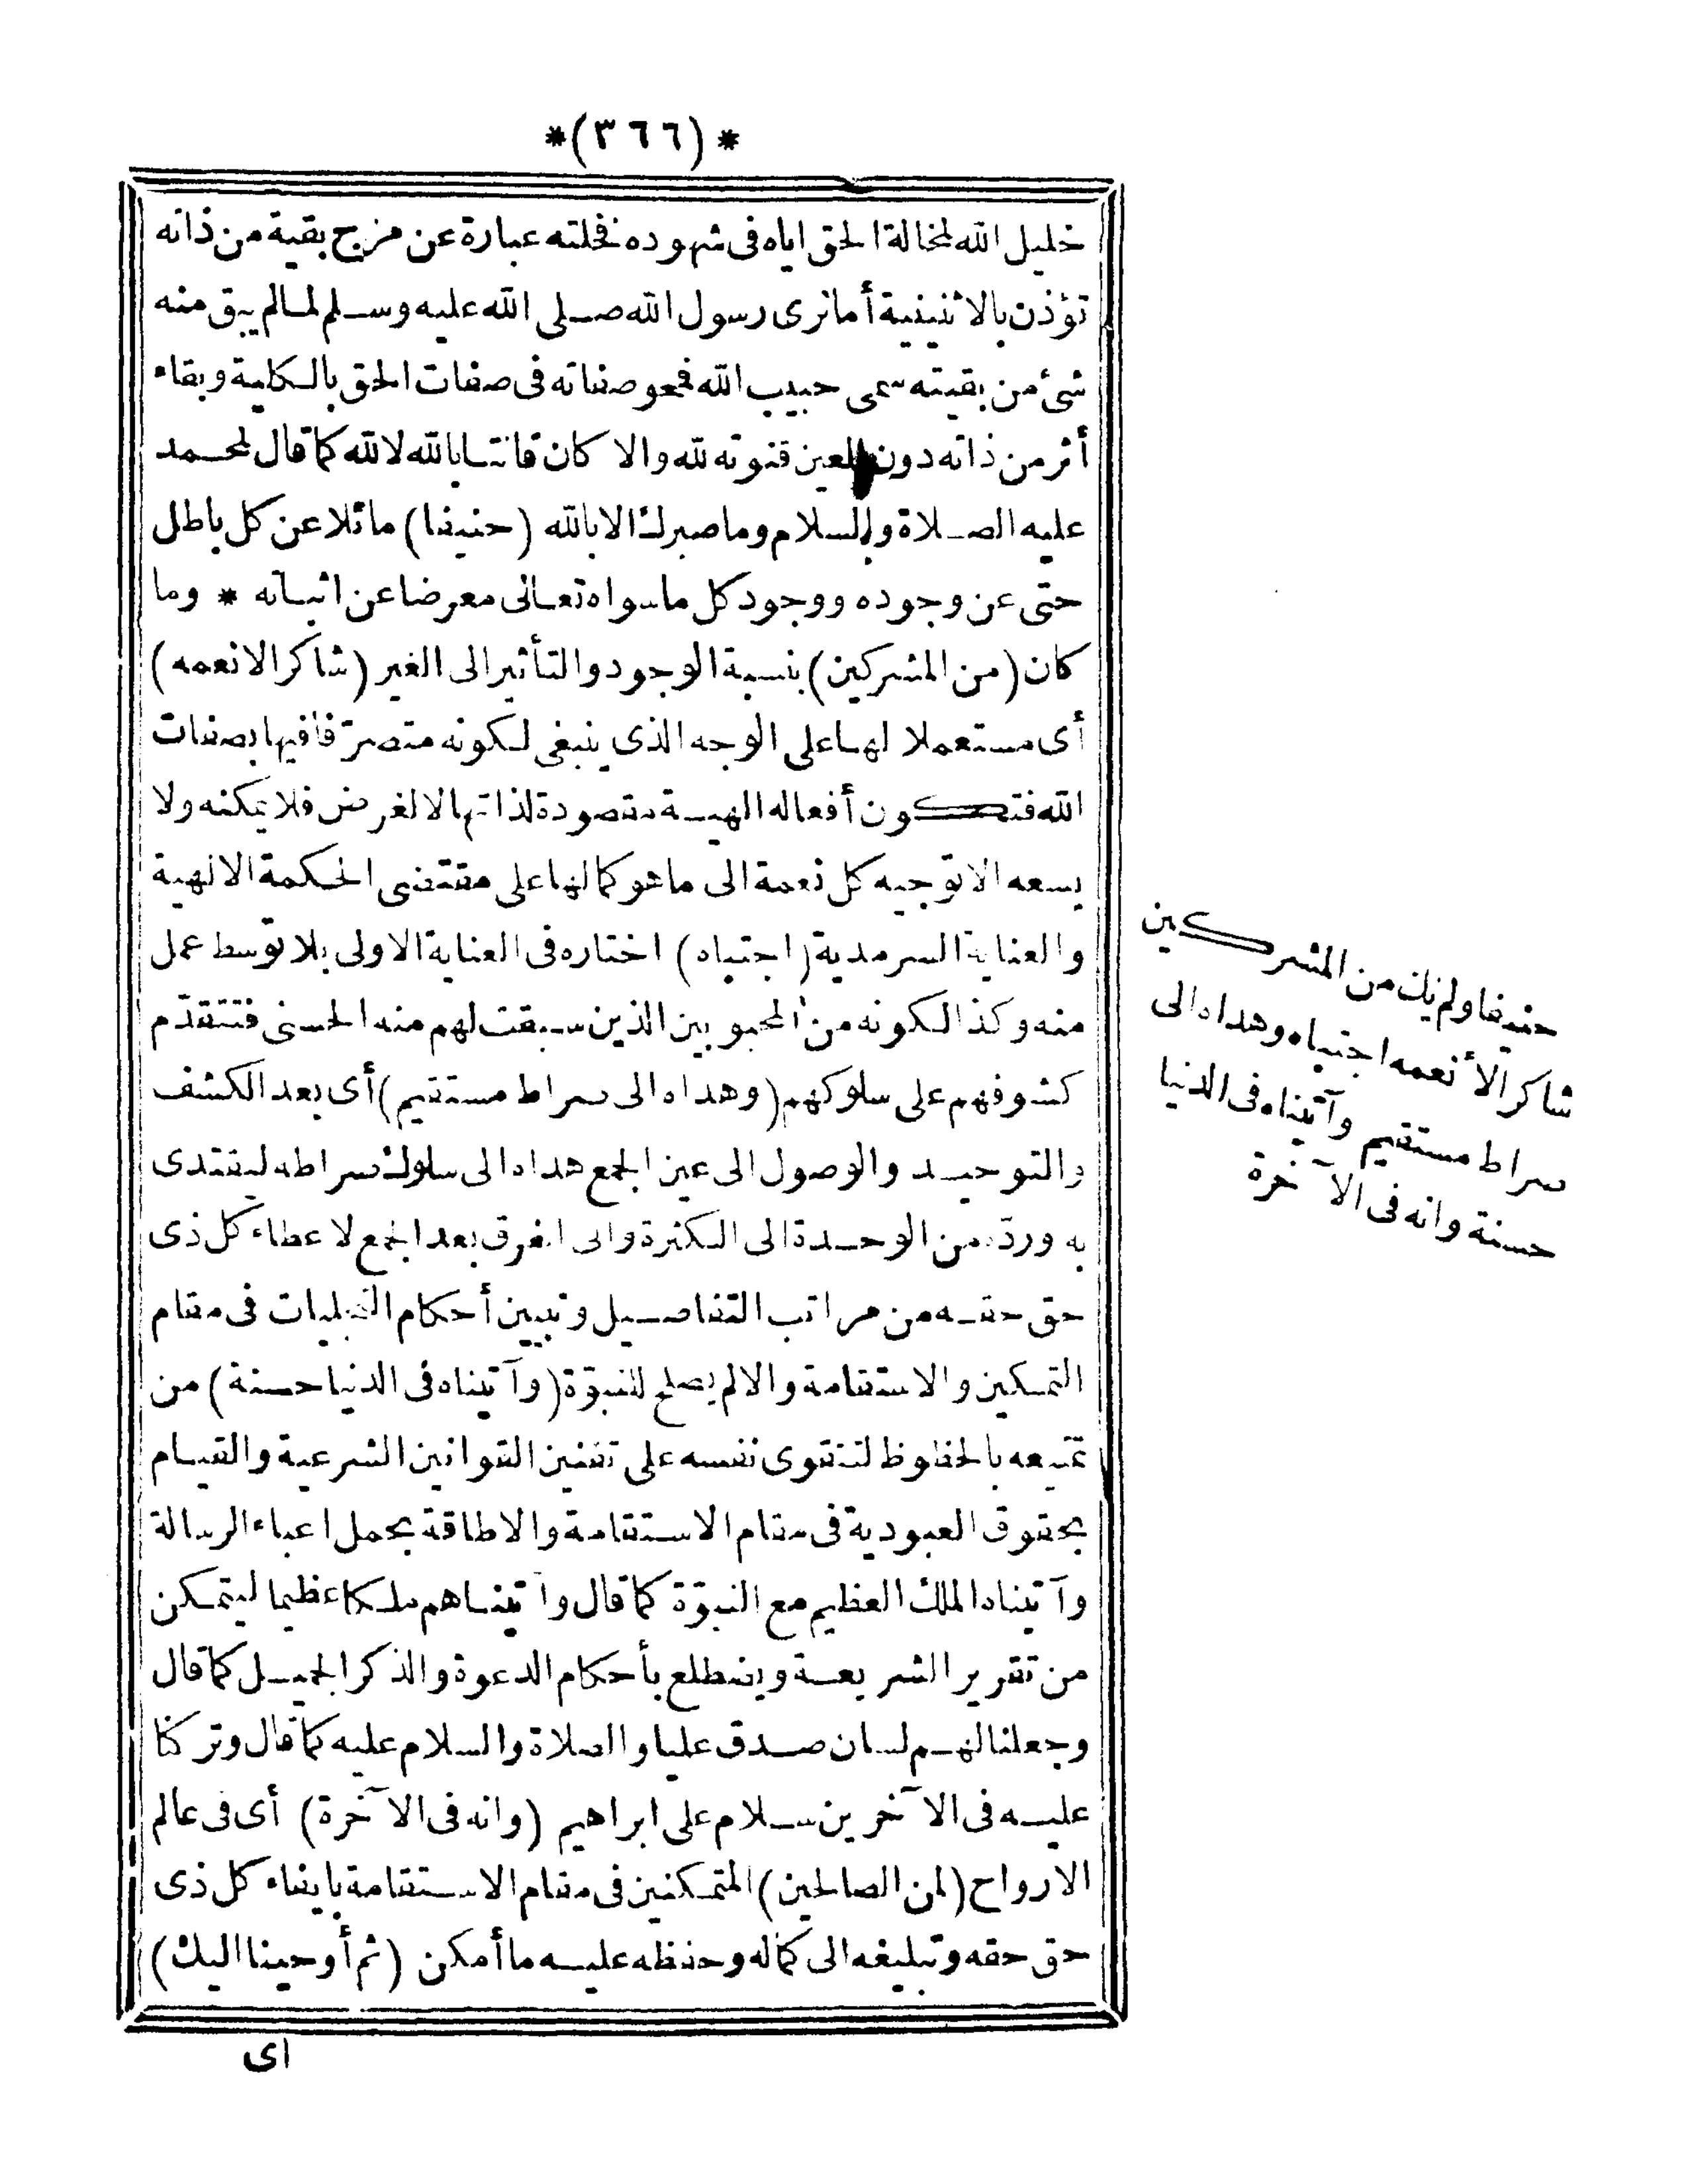 *(٣٦٦)*
خليل الله لمخالة الحق اياه فى شهوده فخلته عبارة عن مزج بقية من ذاته
تؤذن بالاثنينية أما ترى رسول الله صلى الله عليه وسلم لما لم يبق منه
شئ من بقيته سمى حبيب الله فمحو صفاته فى صفات الحق بالكلية وبقاء
أثر من ذاته دون العين قنوته لله والا كان قانتا بالله لا لله كما قال لمحمد
عليه الصلاة والسلام وما صبرك الا بالله (حنيفا) مائلا عن كل باطل
حتى عن وجوده ووجود كل ما سواه تعالى معرضا عن اثباته * وما
كان (من المشركين) بنسبة الوجود والتأثير الى الغير (شاكرا لانعمه)
أى مستعملا لها على الوجه الذى ينبغى لكونه متصرّفا فيها بصفات
الله فتكون أفعاله الهية مقصودة لذاتها لا لغرض فلا يمكنه ولا
يسعه الا توجيه كل نعمة الى ما هو كمالها على مقتضى الحكمة الالهية
والعناية السرمدية (اجتباه) اختاره فى العناية الاولى بلا توسط عمل
منه وكذا لكونه من المحبوبين الذين سبقت لهم منه الحسنى فتتقدّم
كشوفهم على سلوكهم (وهداه الى صراط مستقيم) أى بعد الكشف
والتوحيد والوصول الى عين الجمع هداه الى سلوك صراطه ليقتدى
به وردّه من الوحدة الى الكثرة والى الفرق بعد الجمع لاعطاء كل ذى
حق حقه من مراتب التفاصيل وتبيين أحكام التجليات فى مقام
التمكين والاستقامة والا لم يصلح للنبوّة (وآتيناه فى الدنيا حسنة) من
تمتيعه بالحظوظ لتتقوى نفسه على تقنين القوانين الشرعية والقيام
بحقوق العبودية فى مقام الاستقامة والاطاقة بحمل اعباء الرسالة
وآتيناه الملك العظيم مع النبوّة كما قال وآتيناهم ملكا عظيما ليتمكن
من تقرير الشريعة ويضطلع بأحكام الدعوة والذكر الجميل كما قال
وجعلنا لهم لسان صدق عليا والصلاة والسلام عليه كما قال وتركنا
عليه فى الآخرين سلام على ابراهيم (وانه فى الآخرة) أى فى عالم
الارواح (لمن الصالحين) المتمكنين فى مقام الاستقامة بايفاء كل ذى
حق حقه وتبليغه الى كماله وحفظه عليه ما أمكن (ثم أوحينا اليك)
اى
حنيفا ولم يك من المشركين
شاكرا لأنعمه اجتباه وهداه الى
صراط مستقيم وآتيناه فى الدنيا
حسنة وانه فى الآخرة